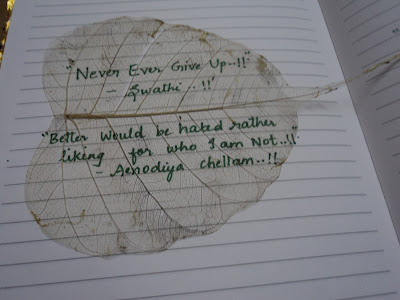 "Never Ever Give Up..!!"
- Swathi..!!
"Better would be hated rather
liking for who I am Not..!!"
- Aenodiya chellam..!!